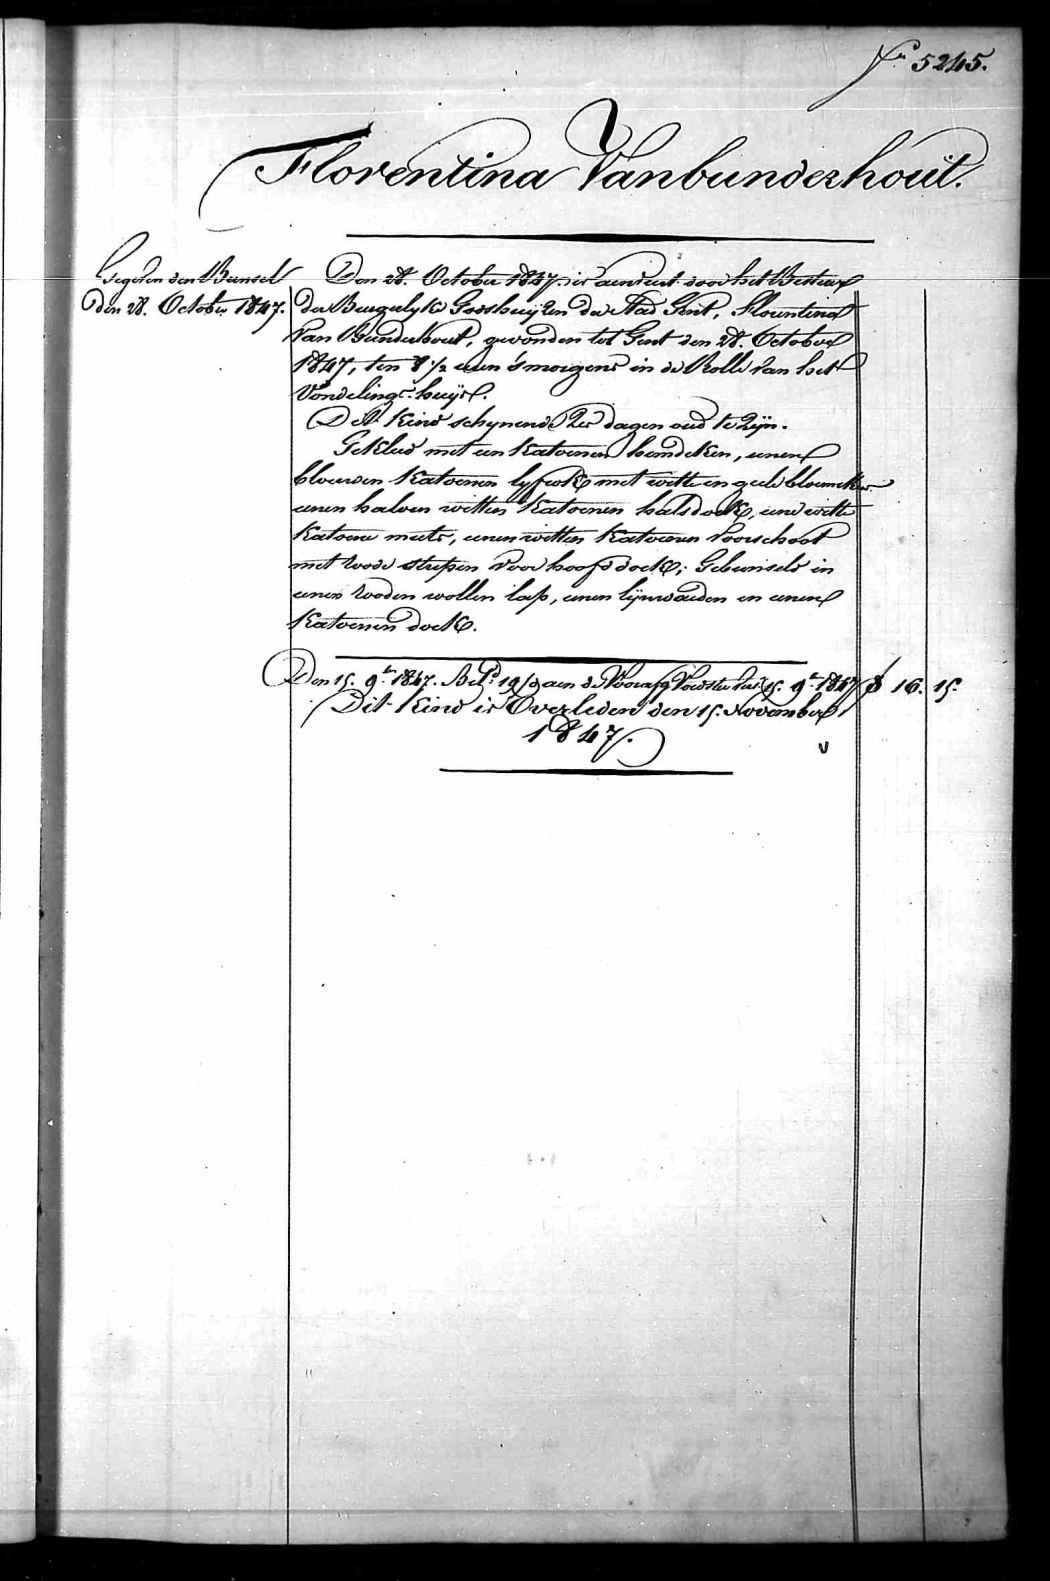 N.° 5245.
Florentina Vanbunderhout.
Gegeven den Bunsel
den 28. October 1847.
Den 28. October 1847. is aenveert door het Bestuer
der Burgelyke Godshuyzen der Stad Gent, Florentina
Van Bunderhout, gevonden tot Gent den 28. October
1847, ten 8 1/2 uren 's morgens in de Rolle van het
Vondelings-huys.
Dit Kind schynende 2 dagen oud te zyn.
Gekleed met een Katoenen hemdeken, eenen
blauwen Katoenen lyfrok met witte en geele bloemekens
eenen halven witten Katoenen halsdoek, eene witte
Katoene muts, eenen witten Katoenen Voorschoot
met roode strepen voor hoofddoek; Gebunseld in
eenen rooden wollen lap, eenen lynwaeden en eenen
Katoenen doek.
Den 15. 9.br 1847. Bet.d 19 aen de Voedster 15. 9.br 1847 16. 15.
Dit Kind is Overleden den 15. November
1847.